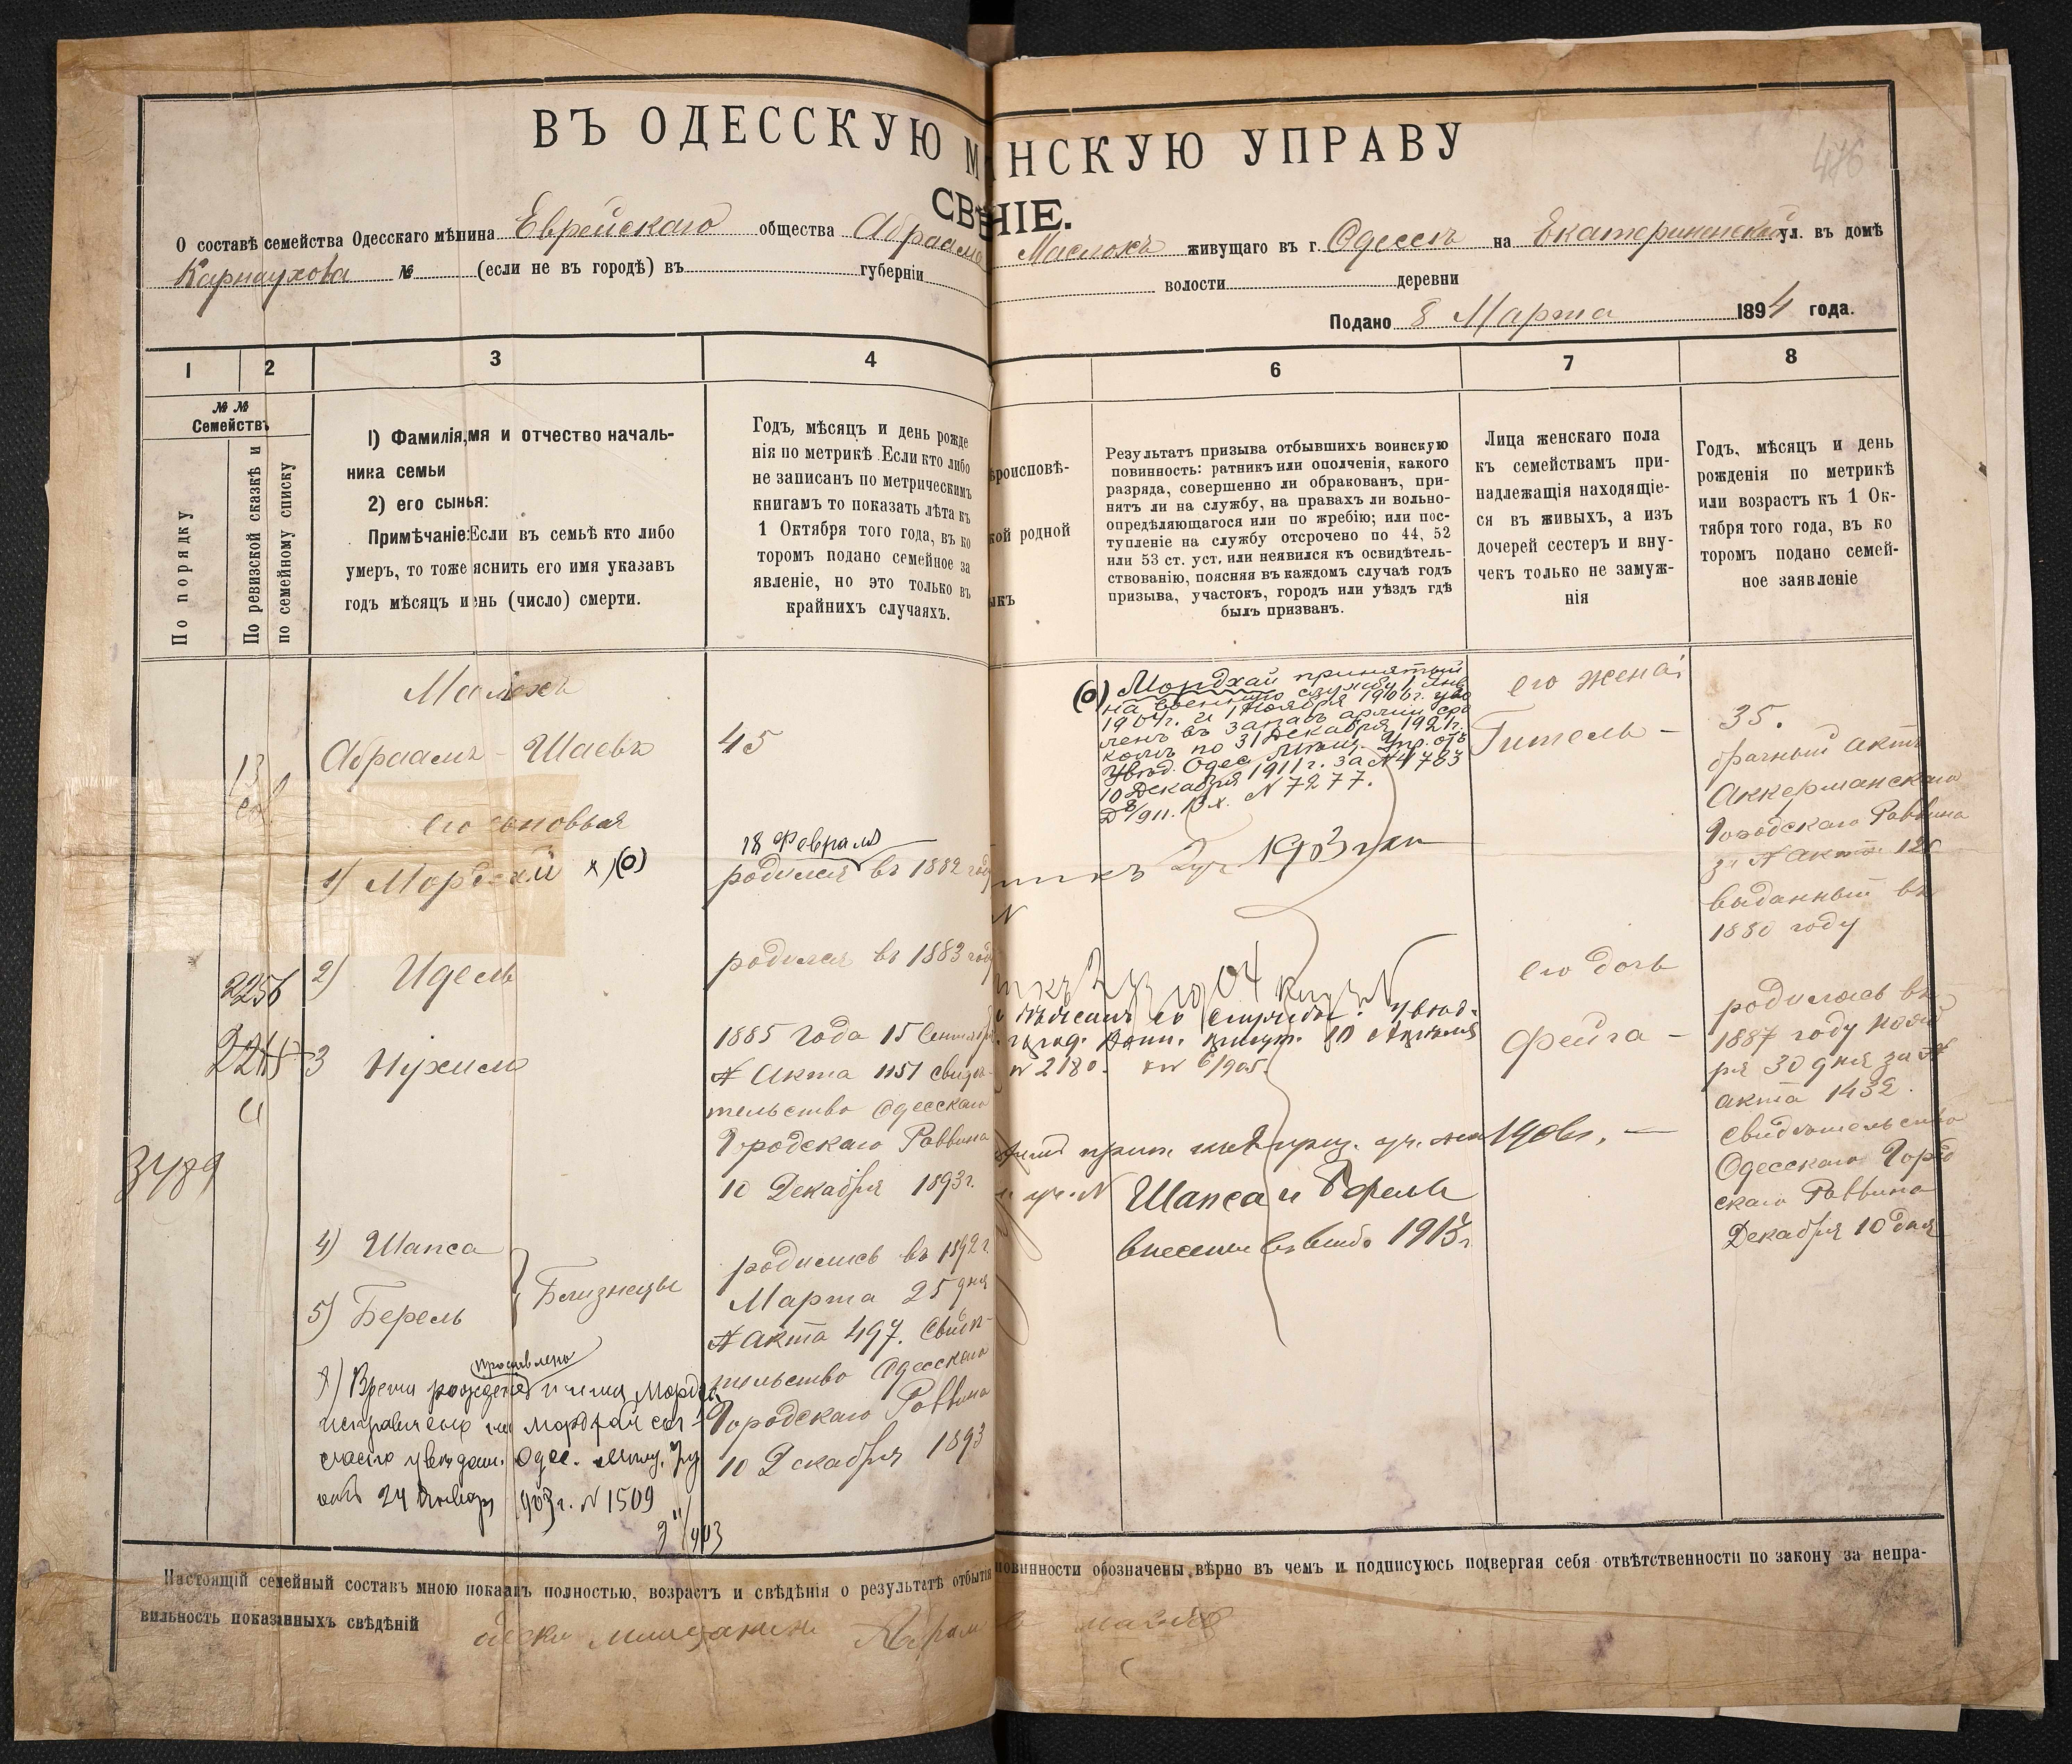 ВЪ ОДЕССКУЮ М
НСКУЮ УПРАВУ
476
СВѢ
НІЕ.
О составѣ семейства Одесскаго мѣщина Еврейскаго общества Абраама
Маслохъ живущаго въ г. Одессѣ на Екатерининской ул. въ домѣ
Карнаухова № (если не въ городѣ) въ губерніи
волости деревни
Подано 8 Марта 1894 года.
1 2 3 4 6 7 8
№ №
Семействъ
По порядку
По ревизской сказкѣ и
по семейному списку
1) Фамилія, мя и отчество началь-
ника семьи
2) его сынья:
Примѣчаніе: Если въ семьѣ кто либо
умеръ, то тоже яснить его имя указавъ
годъ мѣсяцъ и ень (число) смерти.
Годъ, мѣсяцъ и день рожде
нія по метрикѣ. Если кто либо
не записанъ по метрическимъ
книгамъ то показать лѣта къ
1 Октября того года, въ ко
торомъ подано семейное за
явленіе, но это только въ
крайнихъ случаяхъ.
ѣроисповѣ-
кой родной
ыкъ
Результатъ призыва отбывшихъ воинскую
повинность: ратникъ или ополченія, какого
разряда, совершенно ли обракованъ, при-
нятъ ли на службу, на правахъ ли вольно-
опредѣляющагося или по жребію; или пос-
тупленіе на службу отсрочено по 44, 52
или 53 ст. уст. или неявился къ освидѣтель-
ствованію, поясняя въ каждомъ случаѣ годъ
призыва, участокъ, городъ или уѣздъ гдѣ
былъ призванъ.
Лица женскаго пола
къ семействамъ при-
надлежащія находящіе-
ся въ живыхъ, а изъ
дочерей сестеръ и вну-
чекъ только не замуж-
нія
Годъ, мѣсяцъ и день
рожденія по метрикѣ
или возрастъ къ 1 Ок-
тября того года, въ ко
торомъ подано семей-
ное заявленіе
Маслохъ
Абраамъ - Шаевъ
45
13
его сыновья
1) Мордхай х)(о)
18 Февраля
родился въ 1882 году
2) Идель
родился въ 1883 году
2256
2245
3 Нухимъ
1885 года 15 Сентября
№ Акта 1151 свидѣ-
тельство Одесскаго
Городскаго Раввина
10 Декабря 1893 г.
3489
4) Шапса
5) Берель
Близнецы
родились въ 1892 г.
Марта 25 дня
№ акта 497. Свидѣ-
тельство Одесскаго
Городскаго Раввина
10 Декабря 1893
проставлено
х) Время рожденія и имя Мордко
исправлено на Мордхай сог-
ласно увѣдом. Одес. Мѣщ. Упр
отъ 24 Января 1903 г. № 1509
(о) Мордхай принятый
на военную службу 1 Янв
1904 г. и 1 Ноября 1906 г. уво
ленъ въ запасъ арміи сро
комъ по 31 Декабря 1921 г.
Увѣд. Одес. Мѣщ. Упр. отъ
10 Декабря 1911 г. за № 41783
Д 8/911. Вх. № 7277.
1903
Увѣд.
10 Апрѣля
№ 2180. 6/905.
1906 г.
Шапса и Берель
внесены въ 1913 г.
его жена:
Гитель -
35.
брачный актъ
Аккерманскаго
Городскаго Раввина
за № акта 126
выданный въ
1880 году
его дочь
Фейга -
родилась въ
1887 году Нояб
ря 30 дня за №
акта 1432.
Свидѣтельство
Одесскаго Город
скаго Раввина
Декабря 10 дня
Настоящій семейный составъ мною показанъ полностью, возрастъ и свѣдѣнія о результатѣ отбытія
повинности обозначены вѣрно въ чемъ и подписуюсь подвергая себя отвѣтственности по закону за непра-
вильность показанныхъ свѣдѣній